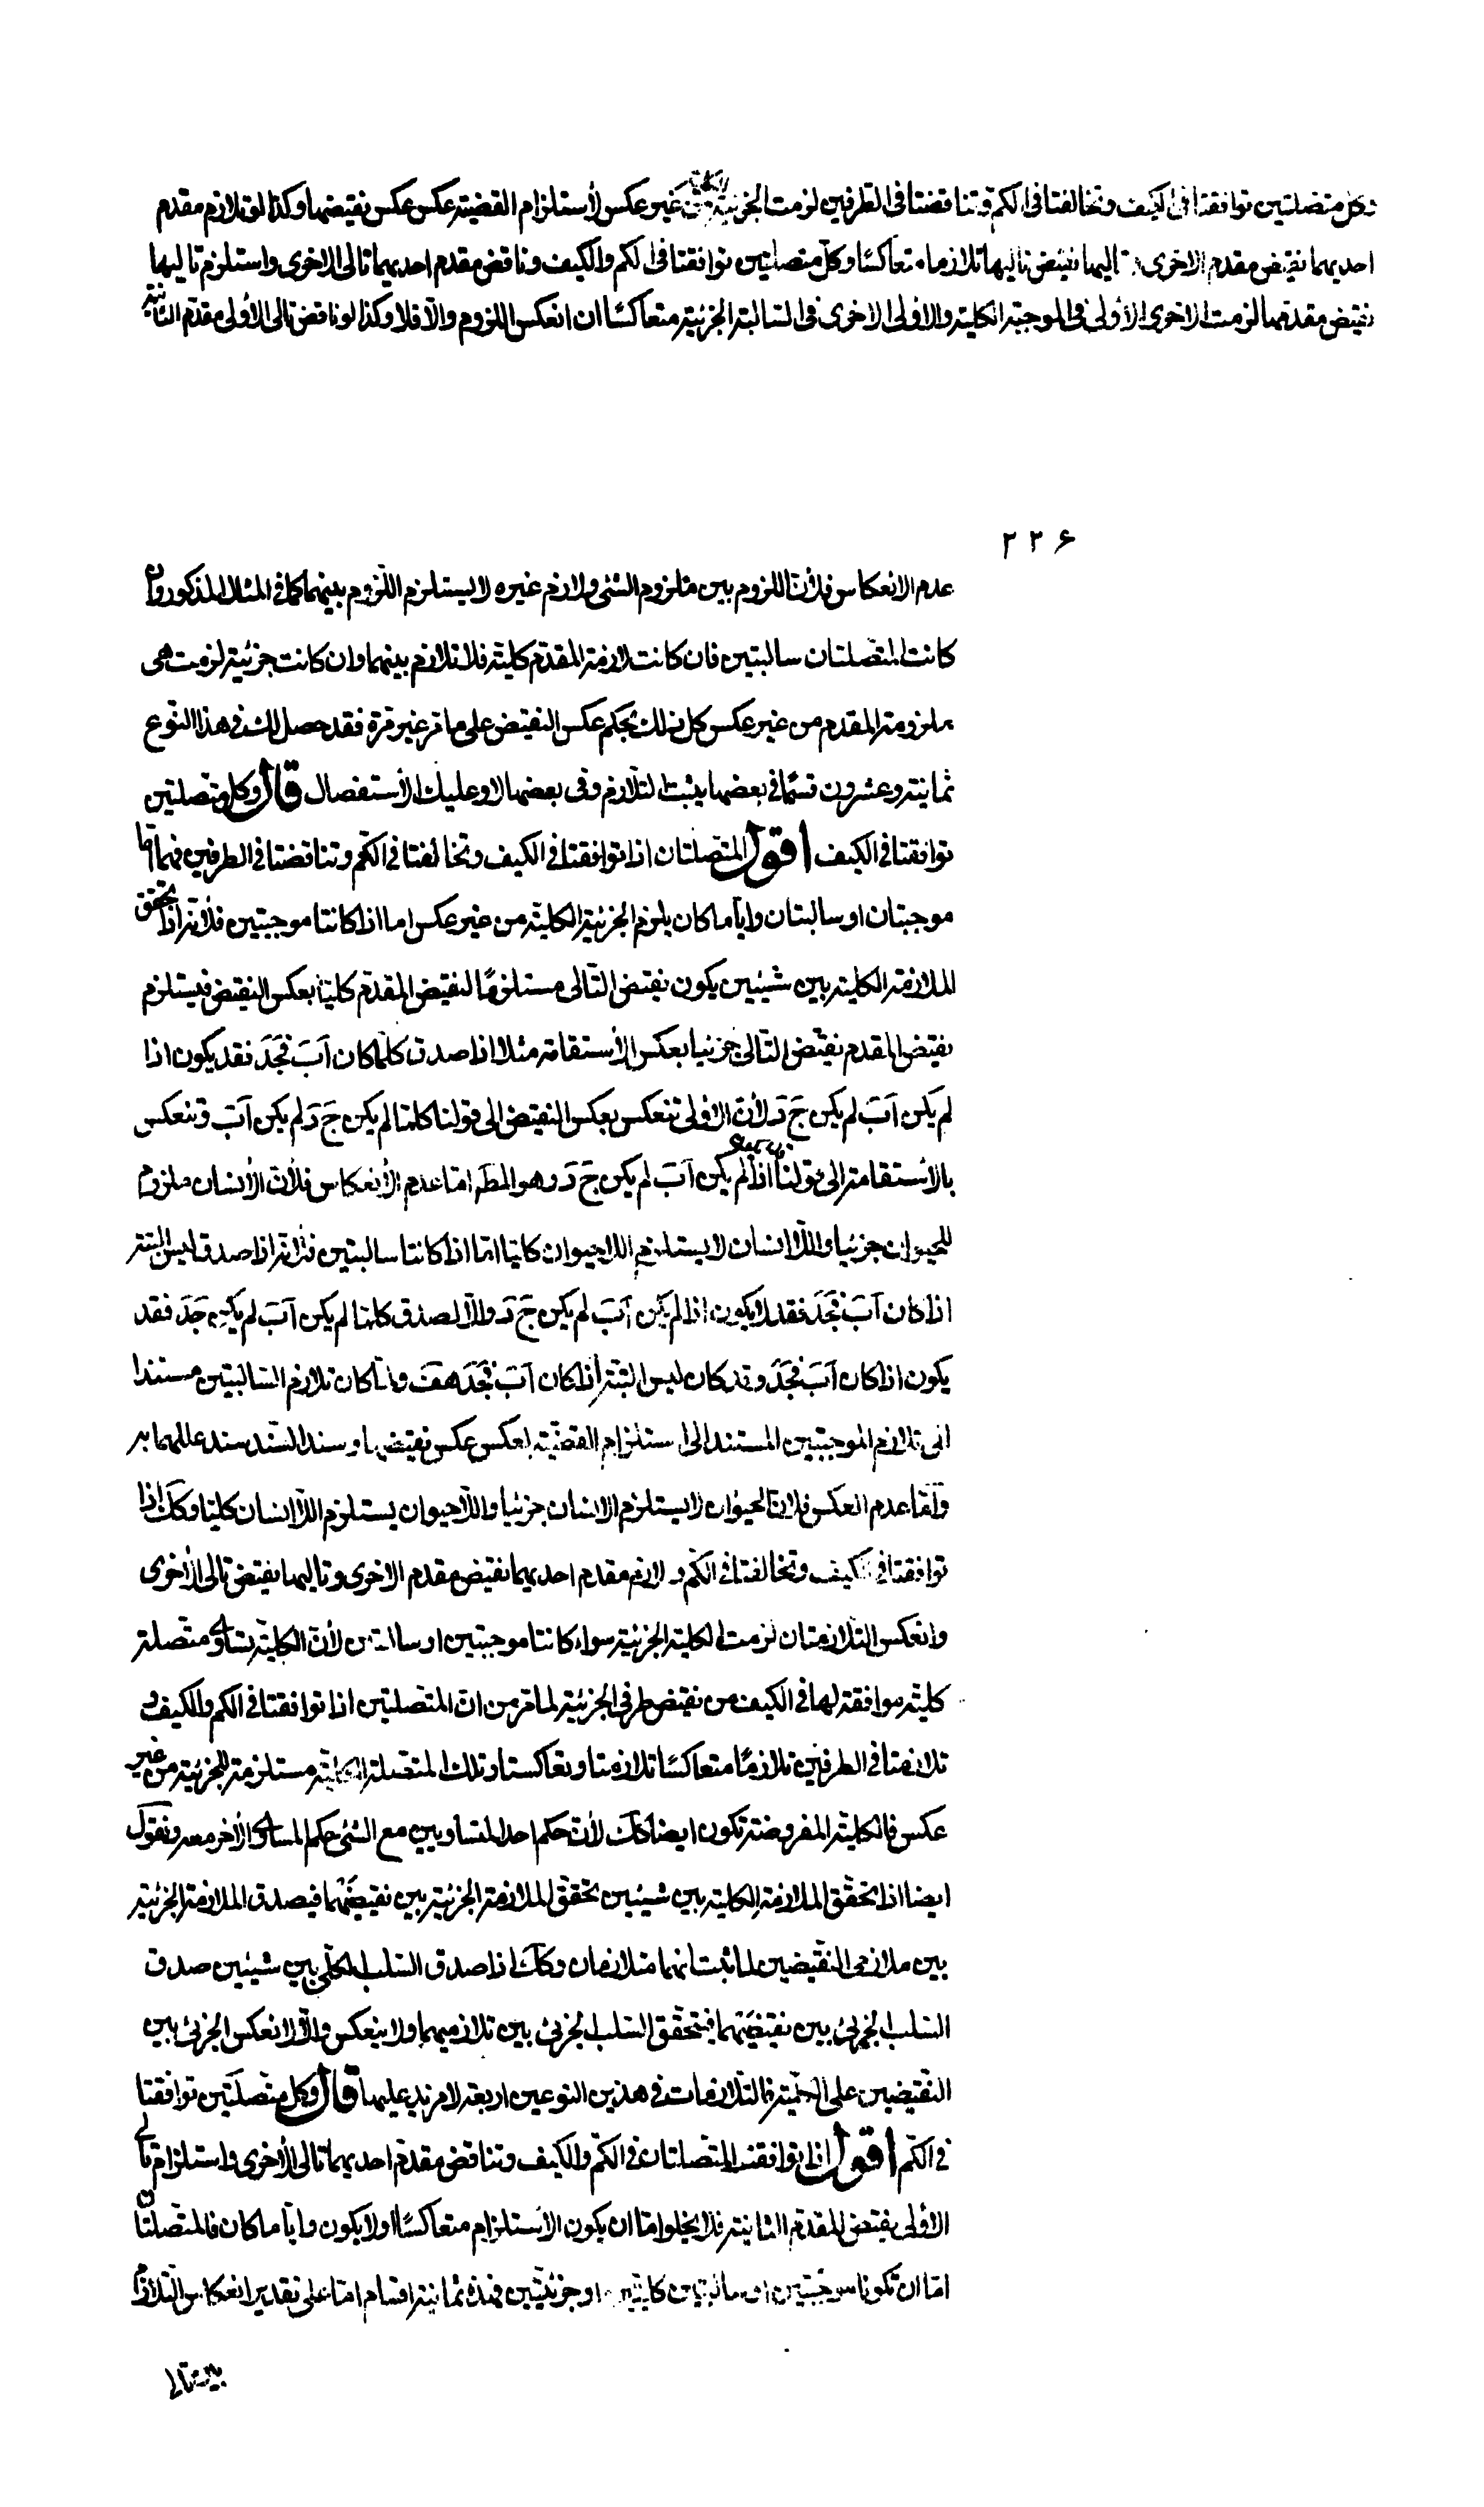 وكل متصلتين توافقتا فى الكيف وتخالفتا فى الكم وتناقضتا فى الطرفين لزمت الجزئية الكلية من غير عكس لأستلزام القضية عكس عكس نقيضها وكذا لو تلازم مقدم
احديهما نقيض مقدم الاخرى وتاليها نقيض تاليها تلازما متعاكسا وكل متصلتين توافقتا فى الكم والكيف وناقض مقدم احديهما تالى الاخرى واستلزم تاليها
نقيض مقدمها لزمت الاخرى الأولى فى الموجبة الكلية والاولى الاخرى فى السالبة الجزئية متعاكسا ان انعكس اللزوم والا فلا وكذا لو ناقض تالى الأولى مقدم الثانية
٢٢۶
عدم الانعكاس فلأن اللزوم بين ملزوم الشئ ولازم غيره لا يستلزم اللزوم بينهما كما فى المثال المذكور وان
كانت المتصلتان سالبتين فان كانت لازمة المقدم كلية فلا تلازم بينهما وان كانت جزئية لزمت هى
ملزومة المقدم من غير عكس كل ذلك بحكم عكس النقيض على ما مر غير مرة فقد حصل لك فى هذا النوع
ثمانية وعشرون قسما فى بعضها يثبت التلازم وفى بعضها لا وعليك الأستفصال قال وكل متصلتين
توافقتا فى الكيف اقول المتصلتان اذا توافقتا فى الكيف وتخالفتا فى الكم وتناقضتا فى الطرفين فهما اما
موجبتان او سالبتان وايا ما كان يلزم الجزئية الكلية من غير عكس اما اذا كانتا موجبتين فلأنه اذا تحقق
الملازمة الكلية بين شيئين يكون نقيض التالى مستلزما لنقيض المقدم كليا بعكس النقيض فيستلزم
نقيض المقدم نقيض التالى جزئيا بعكس الأستقامة مثلا اذا صدق كلما كان آب فجد فقد يكون اذا
لم يكن آب لم يكن ج د لأن الاولى تنعكس بعكس النقيض الى قولنا كلما لم يكن ج د لم يكن آب وتنعكس
بالأستقامة الى قولنا قد يكون اذا لم يكن آب لم يكن ج د وهو المط اما عدم الأنعكاس فلأن الأنسان ملزوم
للحيوان جزئيا واللاانسان لا يستلزم اللاحيوان كليا اما اذا كانتا سالبتين فلأنه اذا صدق ليس البتة
اذا كان آب فجد فقد لا يكون اذا لم يكن آب لم يكن ج د والا لصدق كلما لم يكن آب لم يكن جد فقد
يكون اذا كان آب فجد وقد كان ليس البتة اذا كان آب فجد هف ولما كان تلازم السالبتين مستندا
الى تلازم الموجبتين المستند الى استلزام القضية لعكس عكس نقيضها وسند السند سند عللهما به
واما عدم العكس فلان الحيوان لا يستلزم الانسان جزئيا واللاحيوان يستلزم اللاانسان كليا وكك اذا
توافقتا فى الكيف وتخالفتا فى الكم ولازم مقدم احديهما نقيض مقدم الاخرى وتاليها نقيض تالى الأخرى
وانعكس التلازمتان لزمت الكلية الجزئية سواء كانتا موجبتين او سالبتين لأن الكلية يساوى متصلة
كلية موافقة لها فى الكيف من نقيض طرفى الجزئية لما مر من ان المتصلتين اذا توافقتا فى الكم والكيف و
تلازمتا فى الطرفين تلازما متعاكسا تلازمتا وتعاكستا وتلك المتصلة الكلية مستلزمة للجزئية من غير
عكس فالكلية المفروضة تكون ايضا كك لأن حكم احد المتساويين مع الشئ حكم المساوى الأخر معه ونقول
ايضا اذا تحقق الملازمة الكلية بين شيئين تحقق الملازمة الجزئية بين نقيضهما فيصدق الملازمة الجزئية
بين ملازمى النقيضين لما ثبت انهما متلازمان وكك اذا صدق السلب الكلى بين شيئين صدق
السلب الجزئى بين نقيضيهما فيتحقق السلب الجزئ بين تلازميهما ولا ينعكس والا لانعكس الجزئ بين
النقيضين على الكلية فالتلازمات فى هذين النوعين اربعة لا مزيد عليها قال وكل متصلتين توافقتا
فى الكم اقول اذا توافقت المتصلتان فى الكم والكيف وتناقض مقدم احديهما تالى الأخرى واستلزام تالى
الأولى نقيض المقدم الثانية فلا يخلو اما ان يكون الأستلزام متعاكسا اولا يكون وايا ما كان فالمتصلتان
اما ان تكونا موجبتين او سالبتين كليتين او جزئيتين فهذه ثمانية اقسام اما على تقدير انعكاس التلازم